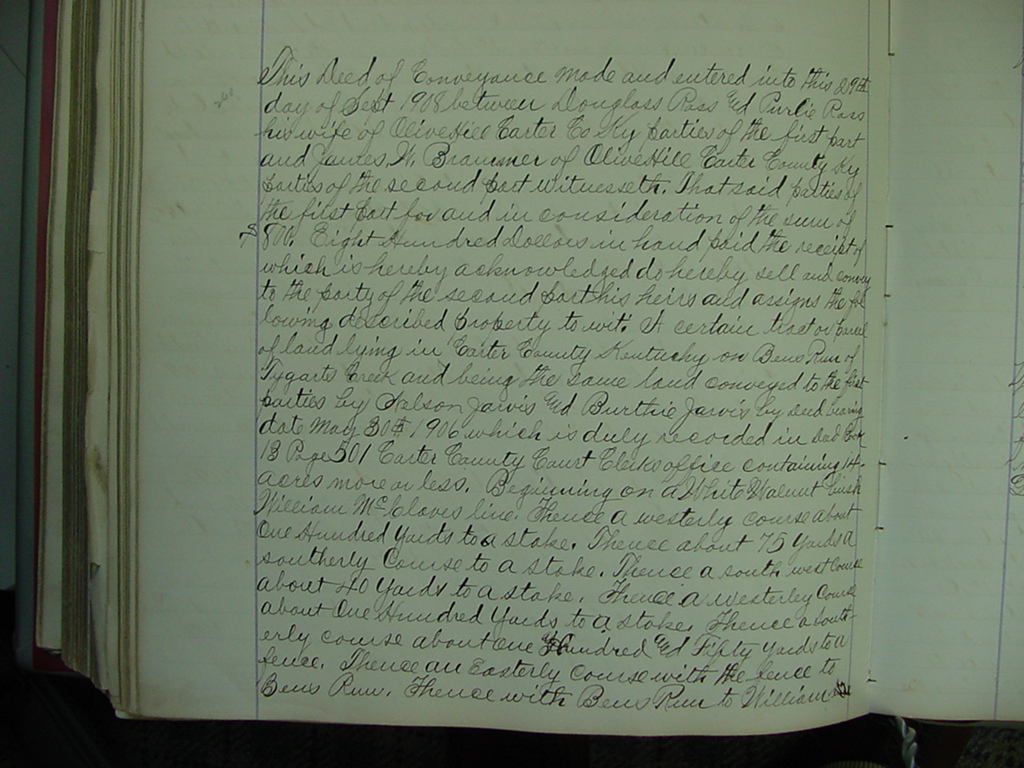 This Deed of Conveyance made and entered into this 29th
day of Sept 1908 between Douglass Ross & Purlie Ross
his wife of OliveHill Carter Co Ky parties of the first part
and James H. Brammer of OliveHill Carter County Ky
parties of the second part witnesseth. That said parties of
the first part for and in consideration of the sum of
$800. Eight Hundred Dollars in hand paid the receipt of
which is hereby acknowledged do hereby sell and convey
to the party of the second part his heirs and assigns the fol
lowing described property to wit: A certain tract or parcel
of land lying in Carter County Kentucky on Bens Run of
Tygarts Creek and being the same land conveyed to the first
parties by Nelson Jarvis & Burthie Jarvis by deed bearing
date May 30th 1906 which is duly recorded in deed Book
13 Page 501 Carter County Court Clerks office containing 14
acres more or less. Beginning on a White Walnut bush
William McGloves line. Thence a westerly course about
One Hundred Yards to a stake. Thence about 75 Yards a
southerly Course to a stake. Thence a south west Course
about 40 Yards to a stake. Thence a westerley Course
about One Hundred Yards to a stake. Thence a
erly course about one Hundred & Fifty yards to a
fence. Thence an Easterly Course with the fence to
Bens Run. Thence with Bens Run to William